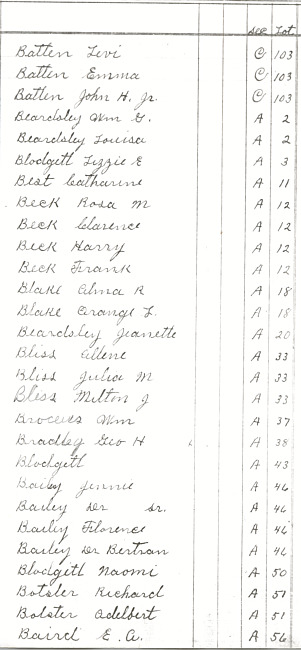 Sec Lot
Batten Levi C 103
Batten Emma C 103
Batten John H. Jr. C 103
Beardsley Wm G. A 2
Beardsley Louisa A 2
Blodgett Lizzie E A 3
Best Catharine A 11
Beck Rosa M A 12
Beck Clarence A 12
Beck Harry A 12
Beck Frank A 12
Blake Alma R A 18
Blake Orange L. A 18
Beardsley Jeanette A 20
Bliss Allene A 33
Bliss Julia M A 33
Bless Milton J A 33
Wm A 37
Bradley Geo H A 38
Blodgett A 43
Bailey Jennie A 46
Bailey Dr Sr. A 46
Bailey Florence A 46
Bailey Dr Bertran A 46
Blodgett Naomi A 50
Botsler Richard A 51
Bolster Adelbert A 51
Baird E. A. A 56